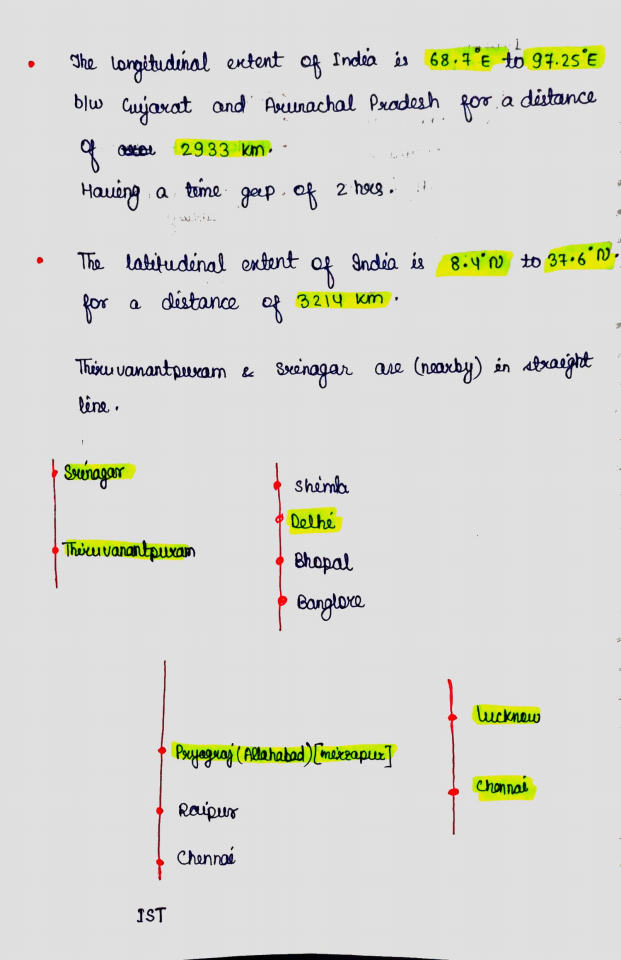 The longitudinal extent of India is 68.7°E to 97.25°E
b/w Gujarat and Arunachal Pradesh for a distance
of 2933 km.
Having a time gap of 2 hrs.
The latitudinal extent of India is 8.4°N to 37.6°N.
for a distance of 3214 km.
Thiruvanantpuram & Srinagar are (nearby) in straight
line.
Srinagar
Thiruvanantpuram
Shimla
Delhi
Bhopal
Banglore
Pryagraj (Allahabad) [mirzapur]
Raipur
Chennai
IST
Lucknow
Chennai